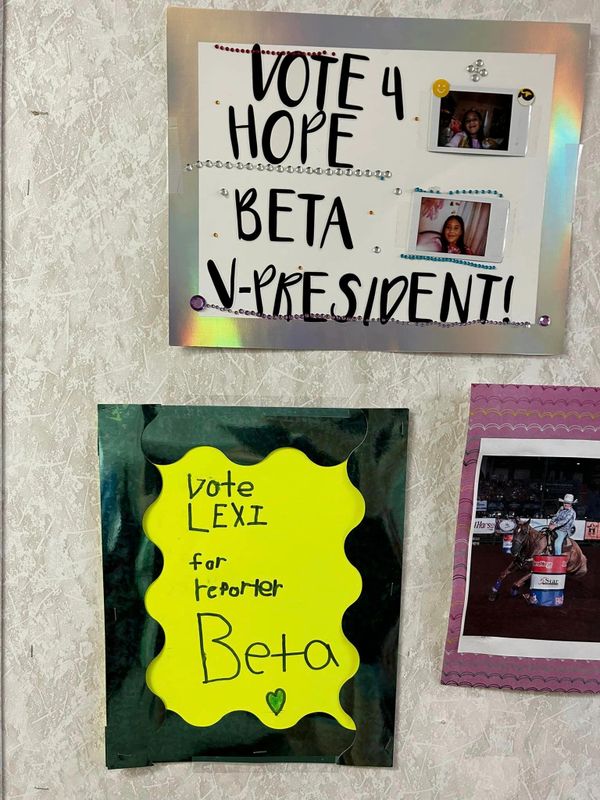 VOTE 4
HOPE
BETA
V-PRESIDENT!
Vote
LEXI
for
reporter
Beta
Star